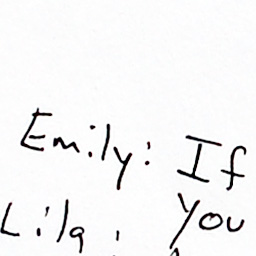 Emily: If
Lila: You